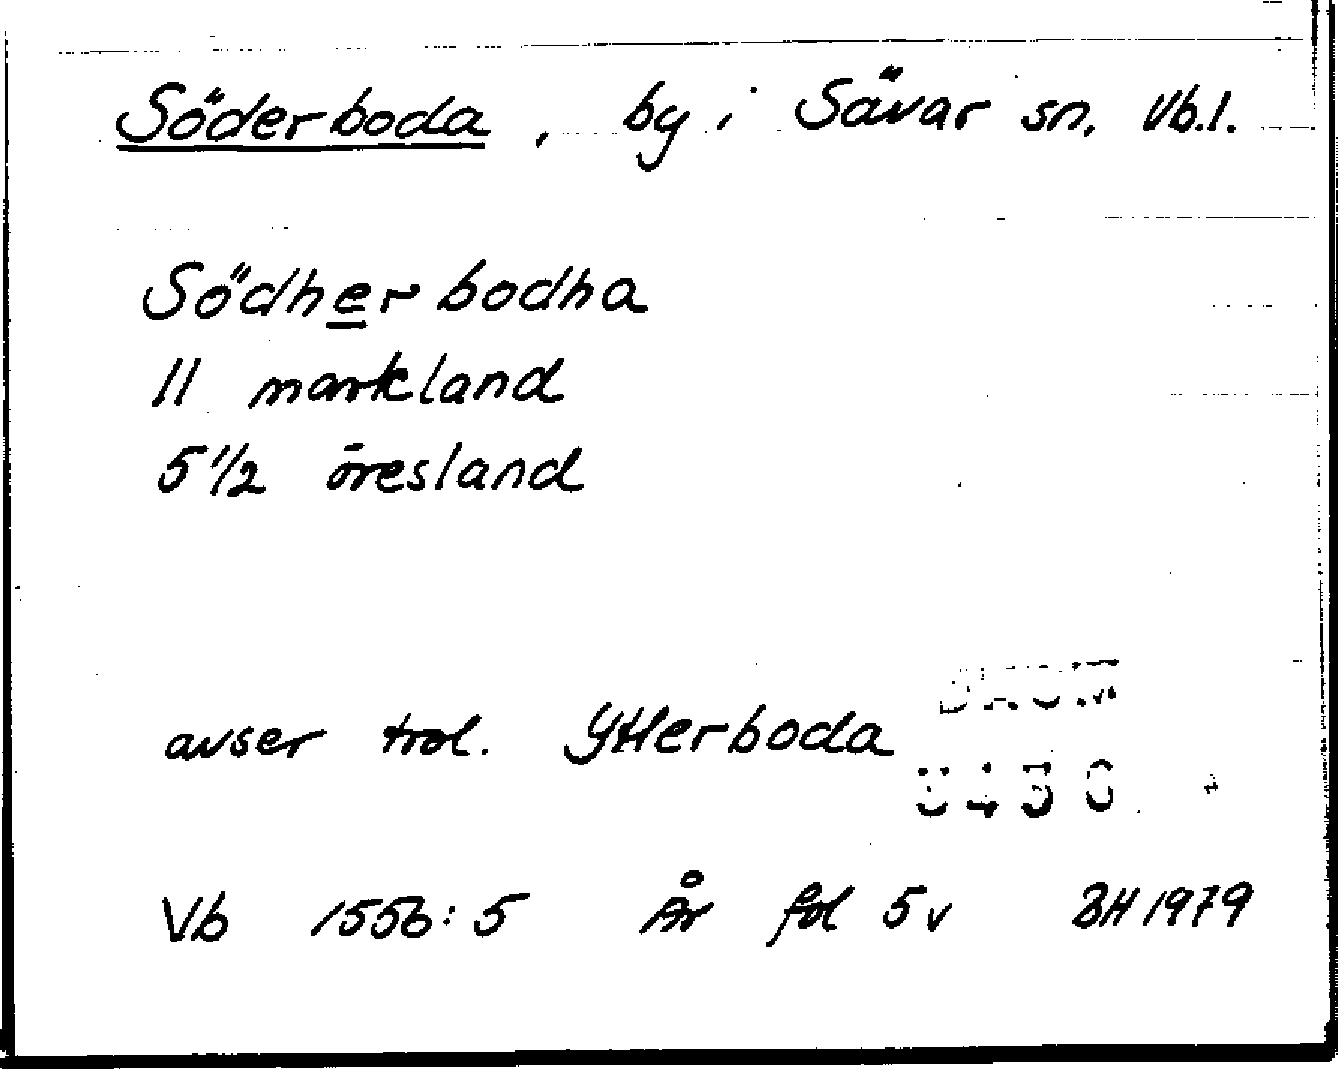 Söderboda, by i Sävar sn. Vb.l.
Södherbodha
11 markland
5 1/2 öresland
avser trol. Ytterboda
DAUM
Vb 1556:5 År fol 5v BH 1979